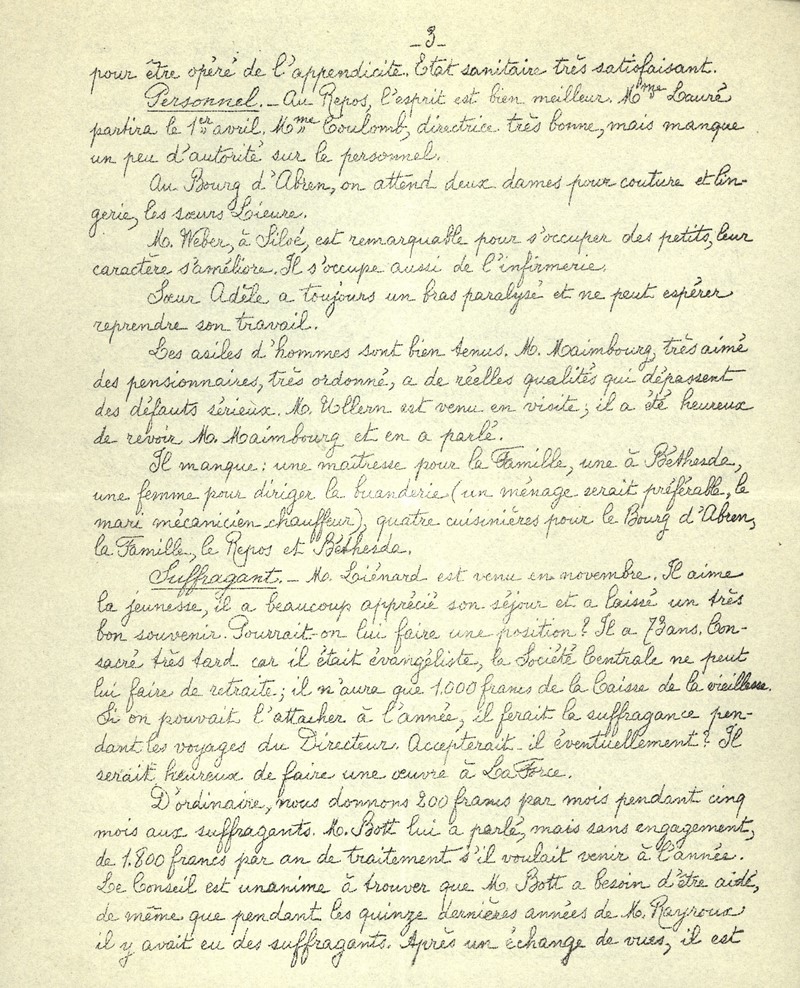 _3_
pour être opéré de l'appendicite. Etat sanitaire très satisfaisant.
Personnel. _ Au Repos, l'esprit est bien meilleur. Mme Lauré
partira le 1er avril. Mme Coulomb, directrice très bonne, mais manque
un peu d'autorité sur le personnel.
Au Bourg d'Abren, on attend deux dames pour couture et lin-
gerie, les sœurs Lieure.
M. Weber, à Siloé, est remarquable pour s'occuper des petits, leur
caractère s'améliore. Il s'occupe aussi de l'infirmerie.
Sœur Adèle a toujours un bras paralysé et ne peut espérer
reprendre son travail.
Les asiles d'hommes sont bien tenus. M. Maimbourg, très aimé
des pensionnaires, très ordonné, a de réelles qualités qui dépassent
des défauts sérieux. M. Ullern est venu en visite ; il a été heureux
de revoir M. Maimbourg et en a parlé.
Il manque : une maîtresse pour la Famille, une à Béthesda,
une femme pour diriger la buanderie (un ménage serait préférable, le
mari mécanicien-chauffeur), quatre cuisinières pour le Bourg d'Abren,
la Famille, le Repos et Béthesda.
Suffragant. _ M. Liénard est venu en novembre. Il aime
la jeunesse, il a beaucoup apprécié son séjour et a laissé un très
bon souvenir. Pourrait-on lui faire une position ? Il a 73 ans. Con-
sacré très tard car il était évangéliste, la Société Centrale ne peut
lui faire de retraite ; il n'aura que 1.000 francs de la Caisse de la vieillesse.
Si on pouvait l'attacher à l'année, il ferait la suffragance pen-
dant les voyages du Directeur. Accepterait-il éventuellement ? Il
serait heureux de faire une œuvre à La Force.
D'ordinaire, nous donnons 200 francs par mois pendant cinq
mois aux suffragants. M. Bott lui a parlé, mais sans engagement,
de 1.800 francs par an de traitement s'il voulait venir à l'année.
Le Conseil est unanime à trouver que M. Bott a besoin d'être aidé,
de même que pendant les quinze dernières années de M. Rayroux
il y avait eu des suffragants. Après un échange de vues, il est